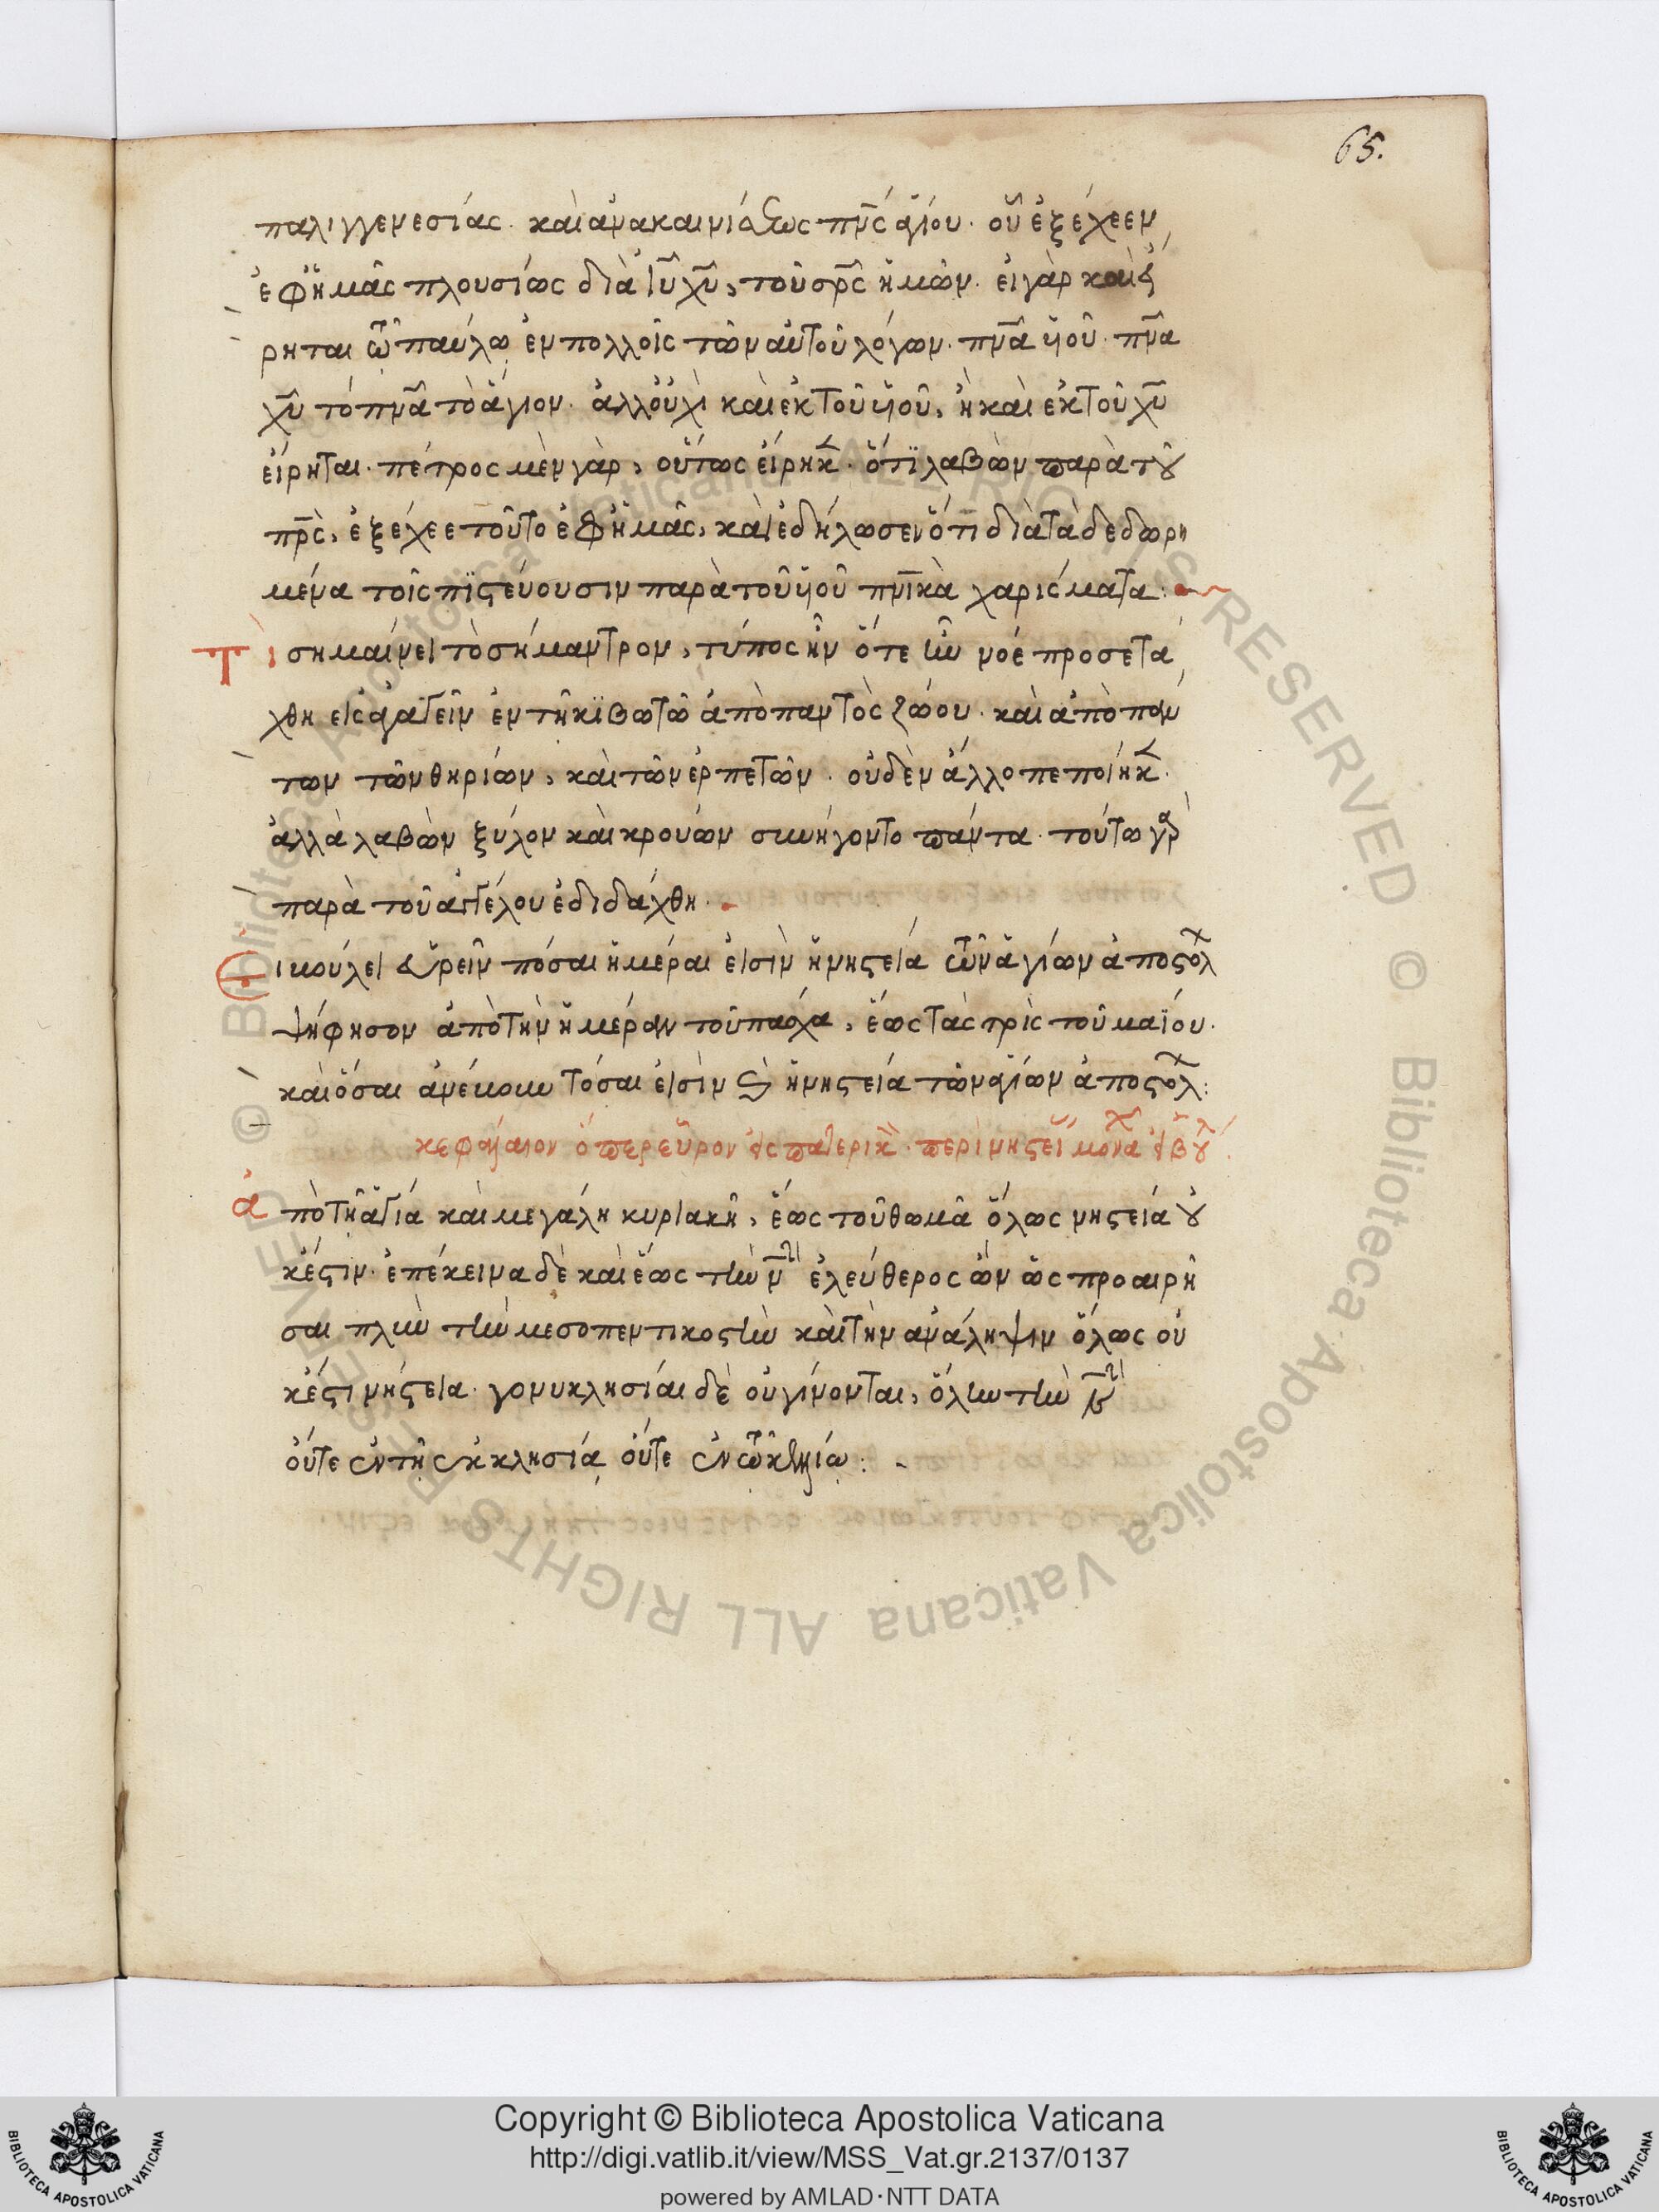 65.
παλιγγενεσίας. καὶ ἀνακαινίσεως πνς ἁγίου. οὗ ἐξέχεεν
ἐφ ἡμᾶς πλουσίως διὰ ιυ χυ, τοῦ σρς ἡμῶν. εἰ γὰρ καὶ εἴ
ρηται τῶ παύλω ἐν πολλοῖς τῶν αὐτοῦ λόγων. πνα υἱοῦ. πνα
χυ τὸ πνα τὸ ἅγιον. ἀλλ οὐχὶ καὶ ἐκ τοῦ υἱοῦ, ἢ καὶ ἐκ τοῦ χυ
εἴρηται. πέτρος μὲν γὰρ, οὕτως εἴρηκ. ὅτι λαβὼν παρὰ τοῦ
πρς, ἐξέχεε τοῦτο ἐφ ἡμᾶς, καὶ ἐδήλωσεν ὅτι διὰ τὰ δεδωρη
μένα τοῖς πιστεύουσιν παρὰ τοῦ υἱοῦ πνικὰ χαρίσματα:
Τὶ σημαίνει τὸ σήμαντρον, τύπος ἦν ὅτε ἦν νόε προσετά
χθη εἰσαγαγεῖν ἐν τῆ κιβωτῶ ἀπὸ παντὸς ζώου. καὶ ἀπὸ πάν
των τῶν θηρίων, καὶ τῶν ἑρπετῶν. οὐδὲν ἄλλο πεποίηκ.
ἀλλὰ λαβὼν ξύλον καὶ κρουών συνήγοντο πάντα. τούτω γὰρ
παρὰ τοῦ ἀγγέλου ἐδιδάχθη.
Εἰ βούλει εὑρεῖν πόσαι ἡμέραι εἰσὶν ἡ νηστεία τῶν ἁγίων ἀποστολ
ψήφησον ἀπὸ τὴν ἡμέραν τοῦ πάσχα, ἕως τὰς τρὶς τοῦ μαΐου.
καὶ ὅσαι ἀνέβουν τόσαι εἰσὶν καὶ ἡ νηστεία τῶν ἁγίων ἀποστολ:
κεφάλαιον ὅπερ εὗρον εἰς πατερικ. περὶ νηστεί μοναχ
ἀπὸ τῆ ἁγία καὶ μεγάλη κυριακῆ, ἕως τοῦ θωμᾶ ὅλως νηστεία οὐ
κέστιν. ἐπέκεινα δὲ καὶ ἕως τὴν ν ἐλεύθερος ὢν ὡς προαιρῆ
σαι πλὴν τὴν μεσοπεντικοστὴν καὶ τὴν ἀνάληψιν ὅλως οὐ
κέστι νήστεια. γονυκλησίαι δὲ οὐ γίνονται, ὅλην τὴν ν
οὔτε ἐν τῆ ἐκκλησία οὔτε ἐν τῶ κελλίω:
Copyright © Biblioteca Apostolica Vaticana
http://digi.vatlib.it/view/MSS_Vat.gr.2137/0137
powered by AMLAD·NTT DATA
BIBLIOTECA APOSTOLICA VATICANA
BIBLIOTECA APOSTOLICA VATICANA
© Biblioteca Apostolica Vaticana ALL RIGHTS RESERVED © Biblioteca Apostolica Vaticana ALL RIGHTS RESERVED